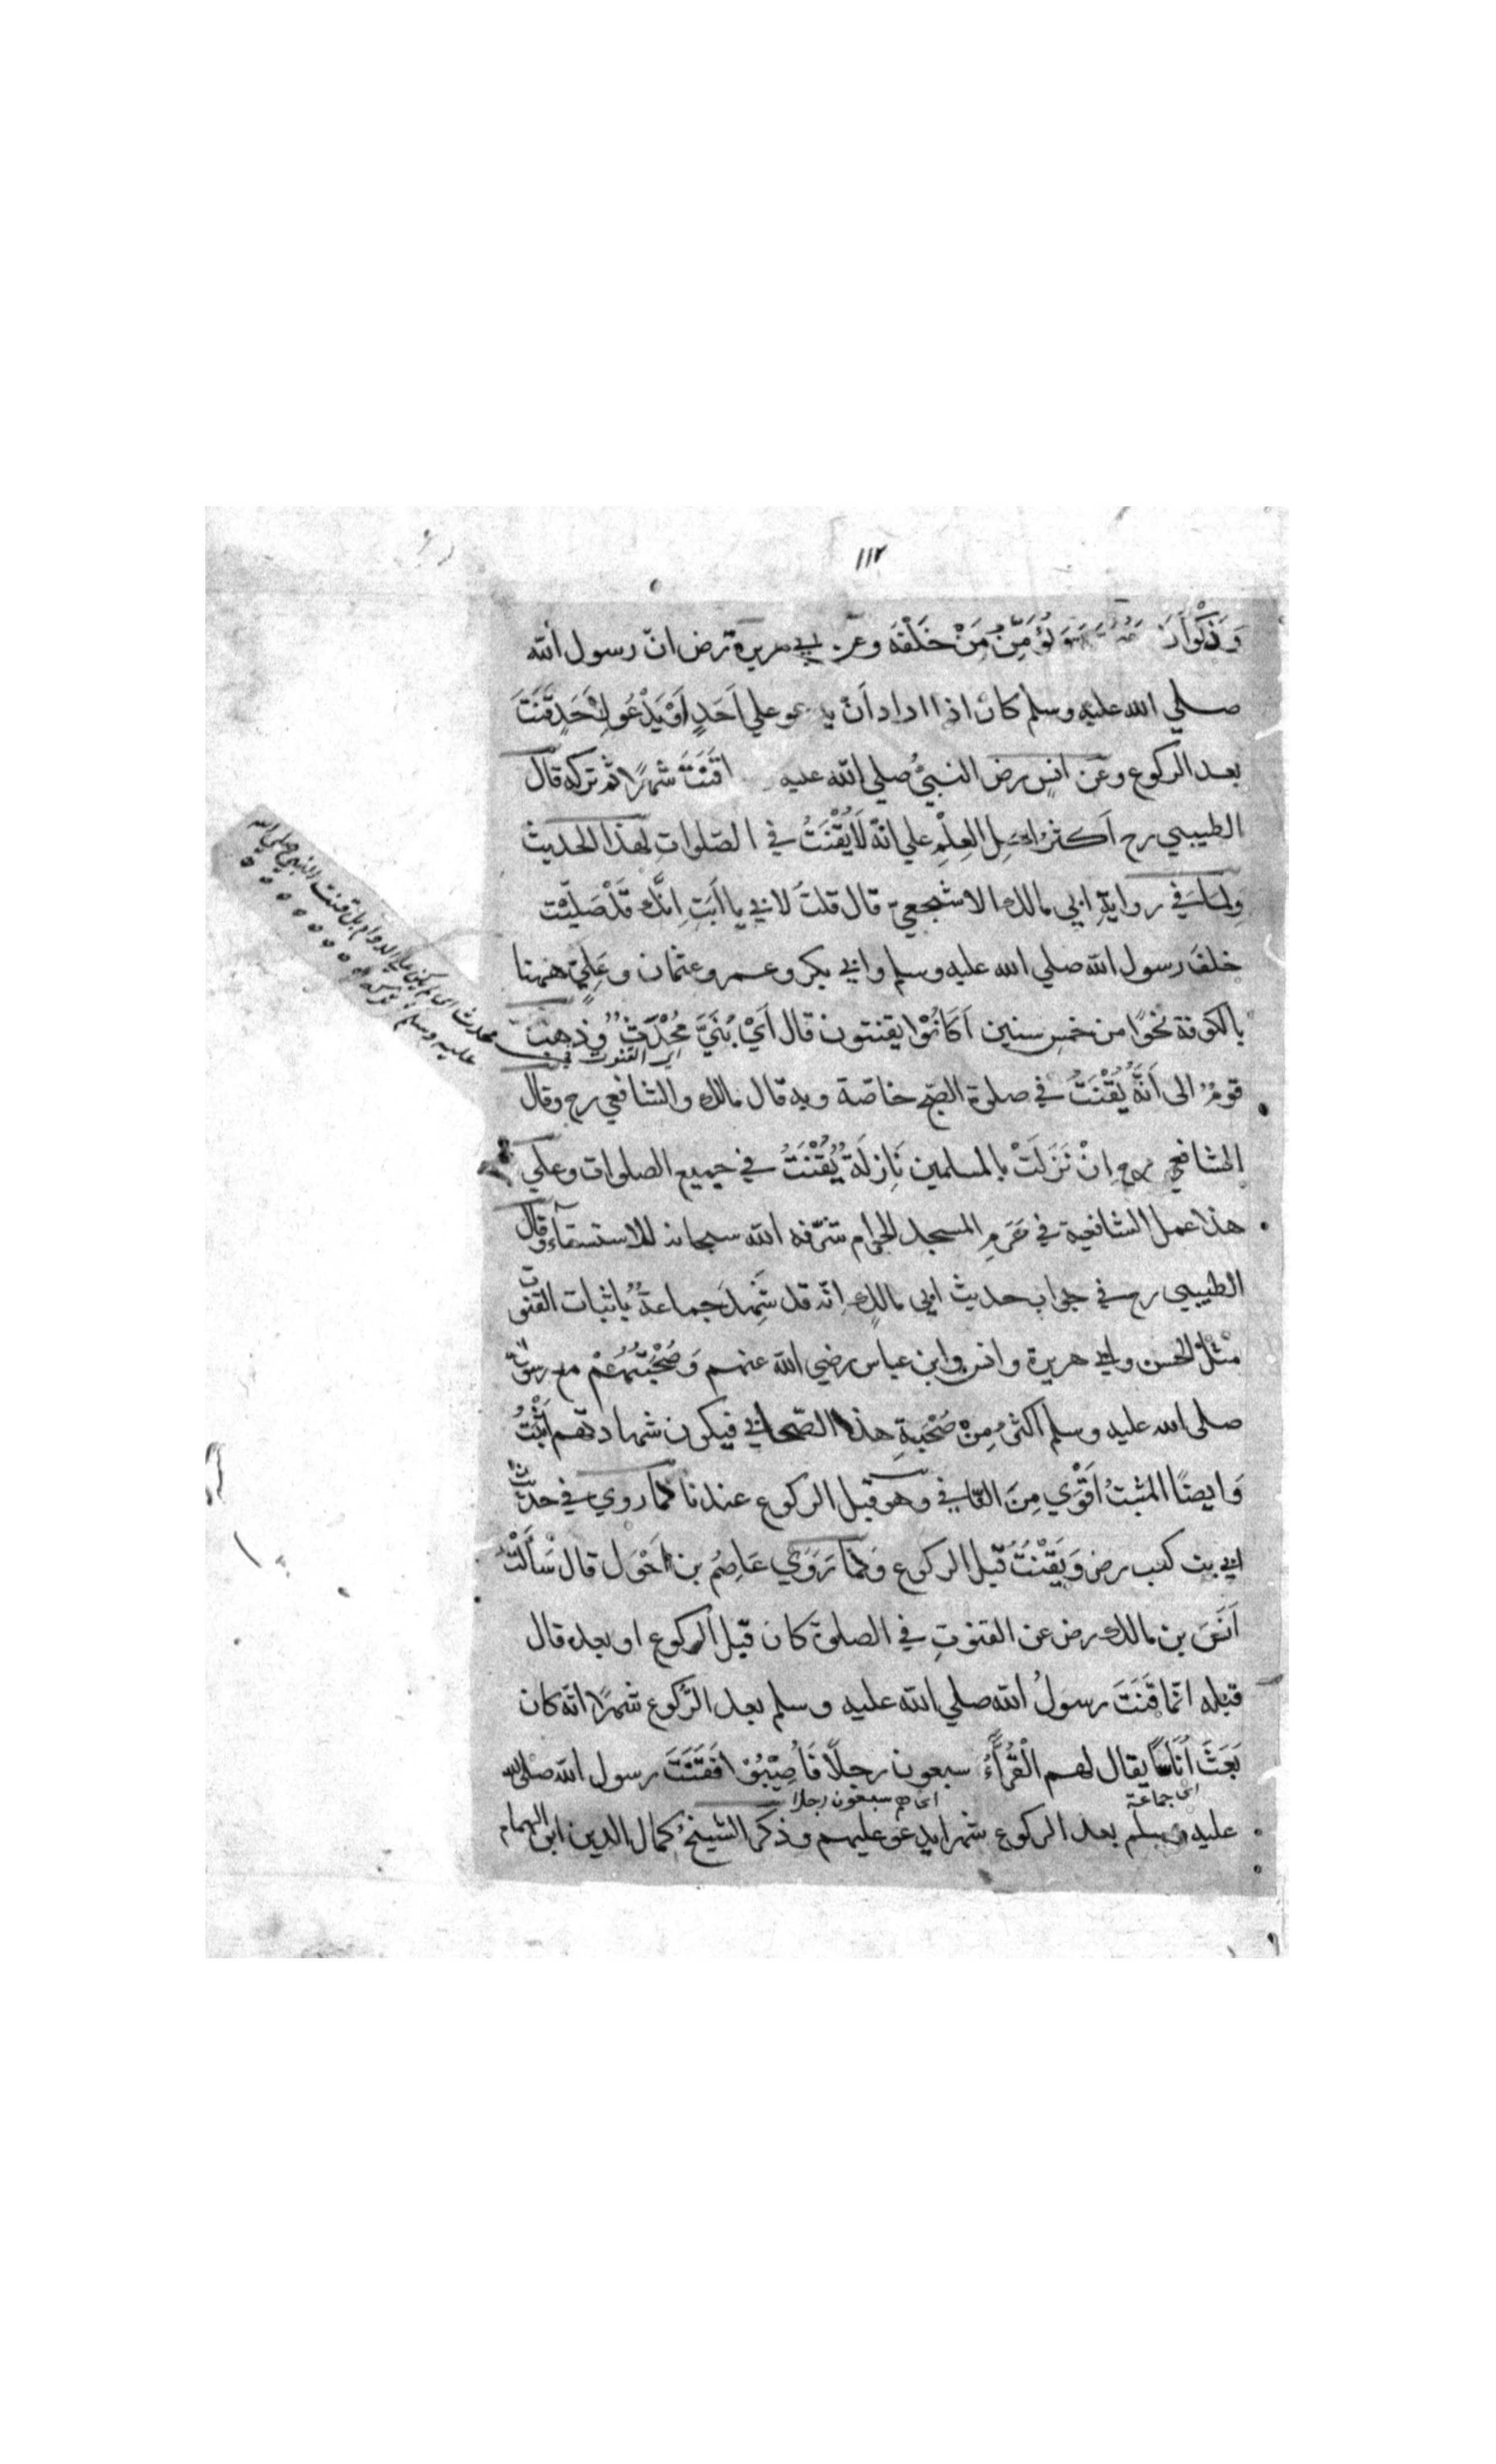 ١١٢
وَذَكْوَانَ وَيُؤَمِّنُ مَنْ خَلْفَهُ وعن ابي هريرة رض انّ رسول الله
صلي الله عليه وسلم كان اذا اراد اَنْ يدعو علي اَحَدٍ اَوْ يَدْعُو لِاَحَدٍ قَنَتَ
بعد الركوع وعن انسٍ رض النبيُّ صلي الله عليه قَنَتَ شهرًا ثم تركه قال
الطيبي رح اَكثرُ اهلِ العِلْمِ علي انّه لَا يُقْنَتُ في الصّلوات لهذا الحديث
وِلمَا في روايةِ ابي مالك الاشجعيّ قال قلتُ لابي يا اَبَتِ اِنَّك قَدْ صَلَّيْتَ
خلفَ رسول الله صلي الله عليه وسلم وابي بكر وعمر وعثمان وعَلِيٍّ ههنا
بالكوفة نحوًا من خمسِ سنين اَكَانُوْا يقنتون قال اَيْ بُنَيَّ مُحْدَثٌ وذهبَ
اي القنوت
قومٌ الى اَنَّهُ يُقْنَتُ في صلوة الصّبح خاصّة وبه قال مالك والشافعي رح وقال
الشافعي رح اِنْ نَزَلَتْ بالمسلمين نَازِلَةٌ يُقْنَتُ في جميع الصلوات وعلي
هذا عمل الشافعية في حَرَمِ المسجد الحرام شرّفه الله سبحانه للاستسقآء وقال
الطيبي رح في جواب حديث ابي مالكٍ اِنّه قد شَهِدَ جماعةٌ بِاثبات القنوت
مثْلُ الحسن وابي هريرة وانس وابن عباس رضي الله عنهم وَصُحْبَتُهُمْ مع رسول الله
صلى الله عليه وسلم اكثرُ مِنْ صُحْبَةِ هذا الصّحابي فيكون شهادتهم اَثْبَتُ
وَايضًا المثبتُ اَقْوَي مِنَ النّافي وهو قبل الركوع عندنا لما روي في حديث
ابي بن كعب رض وَيَقْنُتُ قبل الركوع وَلما رَوَي عَاصِمُ بن اَحْوَل قال سَأَلْتُ
اَنَسَ بن مالك رض عن القنوتِ في الصلوة كان قبل الركوع او بعده قال
قبله انّما قَنَتَ رسولُ الله صلي الله عليه وسلم بعد الرّكوع شهرًا انّه كان
بَعَثَ اُنَاسًا يقال لهم الْقُرَّاءُ سبعون رجلًا فَاُصِيْبُوا فَقَنَتَ رسول الله صلى الله
اى جماعة
اى هم سبعون رجلا
عليه وسلم بعد الركوع شهرا يدعو عليهم وذكر الشيخُ كمال الدين ابن الهمام
محدث اى لم يكن علي الدوام بل قنت النبي صلى الله
عليه وسلم ثم تركه